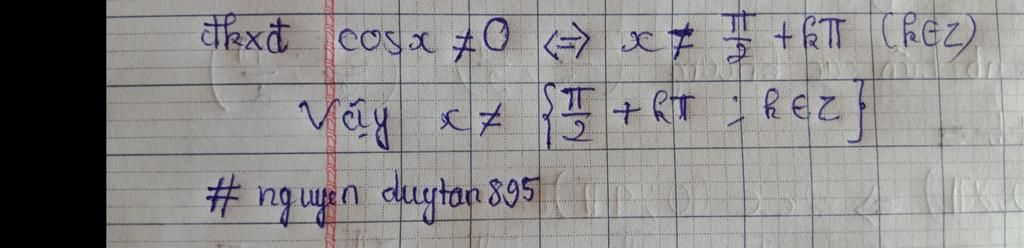 đkxđ cosx ≠ 0 <=> x ≠ π/2 + kπ (k∈Z)
Vậy x ≠ {π/2 + kπ ; k∈Z}
# nguyen duytan895